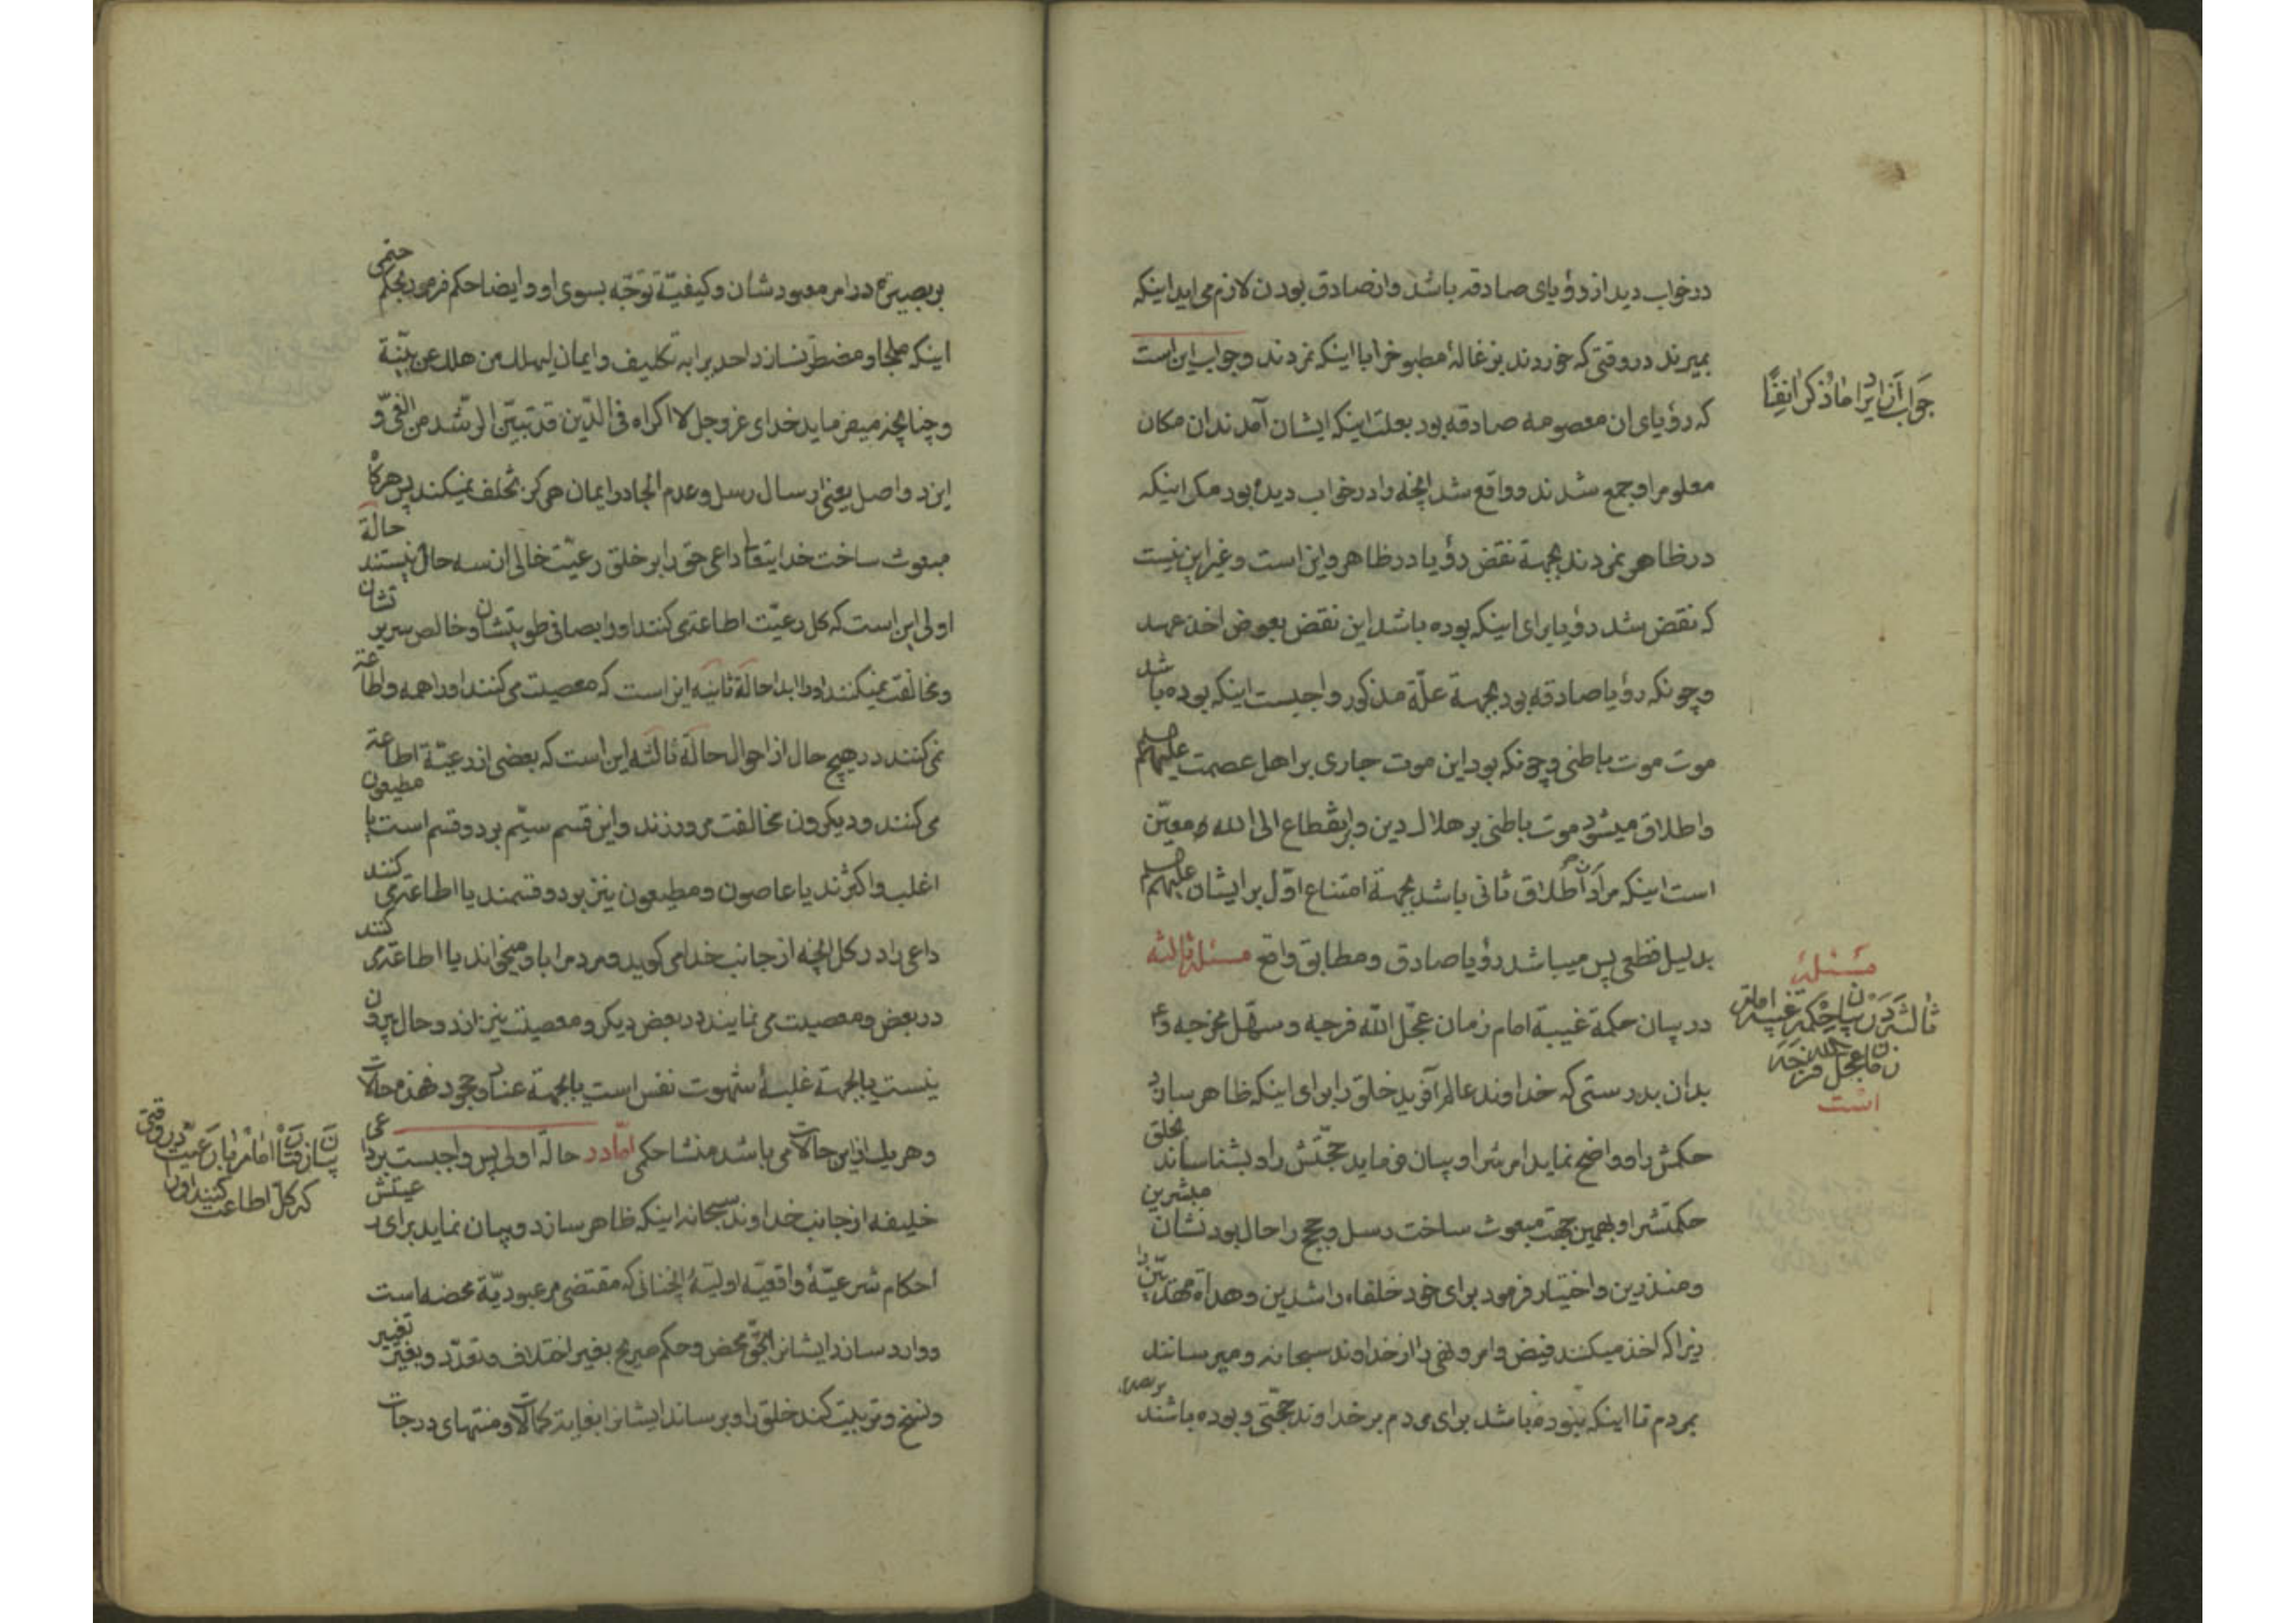 در خواب دید از رؤیای صادقه باشد و از صادق بودن لازم می اید اینکه
بمیرند در وقتی که خوردند بزغالهٔ مطبوخ را با اینکه نمردند و جواب این است
که رؤیای ان معصومه صادقه بود بعلت اینکه ایشان آمدند ان مکان
معلوم را و جمع شدند و واقع شد انچه را در خواب دیده بود مکر اینکه
در ظاهر نمردند بجهة نقض رؤیا در ظاهر و این است و غیر این نیست
که نقض شد رؤیا برای اینکه بوده باشد این نقض بعوض اخذ عهد
و چونکه رؤیا صادقه بود بجهة علّة مذکور واجبست اینکه بوده باشد
موت موت باطنی و چونکه بود این موت جاری بر اهل عصمت علیهم
و اطلاق میشود موت باطنی بر هلاك دین و بر انقطاع الی الله و معیّن
است اینکه مراد از اطلاق ثانی باشد بجهة امتناع اوّل بر ایشان علیهم
بدلیل قطعی پس میباشد رؤیا صادق و مطابق واقع مسئلهٔ ثالثه
در بیان حکمة غیبة امام زمان عجّل الله فرجه و سهّل مخرجه
بدان بدرستی که خداوند عالم آفرید خلق را برای اینکه ظاهر سازد
حکمش را و واضح نماید امرش را و بیان فرماید حجّتش را و بشناساند بخلق
حکمتش را و بهمین جهت مبعوث ساخت رسل و حجج را حال بودنشان مبشرین
و منذرین و اختیار فرمود برای خود خلفاء راشدین و هداة مهتدین را
زیرا که اخذ میکنند فیض و امر و نهی را از خداوند سبحانه و میرسانند
بمردم تا اینکه نبوده باشد برای مردم بر خداوند حجّتی و بوده باشند
جواب از ایراد ما ذکر انفاً
مسئلهٔ
ثالثه در بیان حکمة غیبة امام
زمان عجل الله فرجه
است
بر بصیرة در امر معبودشان و کیفیّة توجّه بسوی او و ایضا حکم فرمود بحکم حتمی
اینکه ملجا و مضطر نسازد احدیرا به تکلیف و ایمان لیهلك من هلك عن بیّنة
و چنانچه میفرماید خدای عز و جل لا اکراه فی الدّین قد تبیّن الرّشد من الغیّ و
این دو اصل یعنی ارسال رسل و عدم الجا در ایمان هرکز تخلف نمیکند پس هرکاه
مبعوث ساخت خدایتعا داعی حق را بر خلق رعیّت خالی از سه حال نیستند حالة
اولی این است که کل رعیّت اطاعت می کنند او را بصافی طویتشان و خالص سریرتشان
و مخالفت نمیکنند او را ابدا حالة ثانیه این است که معصیت می کنند او را همه و اطاعة
نمی کنند در هیچ حال از احوال حالة ثالثه این است که بعضی از رعیّة اطاعة
می کنند و دیکرون مخالفت میورزند و این قسم سیّم بر دو قسم است یا مطیعون
اغلب و اکثرند یا عاصون و مطیعون نیز بر دو قسمند یا اطاعت می کنند
داعی را در کل انچه از جانب خدا می کوید و مردم را با و میخواند یا اطاعت می کنند
در بعض و معصیت می نمایند در بعض دیکر و معصیت نیز از دو حال بیرون
نیست یا بجهة غلبهٔ شهوت نفس است یا بجهة عناد و جحود فهذه حالات
و هر یك از این حالات می باشد منشا حکمی امّا در حالة اولی پس واجبست بر داعی
خلیفه از جانب خداوند سبحانه اینکه ظاهر سازد و بیان نماید برای رعیتش
احکام شرعیّهٔ واقعیّه اولیّهٔ انچنانی که مقتضی مر عبودیّة محضه است
و وارد سازد ایشانرا بحقّ محض و حکم صریح بغیر اختلاف و تعدّد و بغیر تغییر
و نسخ و تربیت کند خلق را و برساند ایشانرا بغایة کمالات و منتهای درجات
بیان زمان امام با رعیّت در وقتی
که کل اطاعت کنند او را